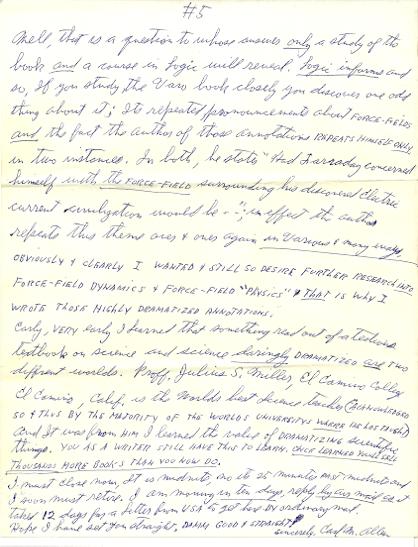 #5
Well, that is a question to whose answer only a study of the
book and a course in Logic will reveal. Logic informs and
so, If you study the Varo book closely you discover one odd
thing about it; Its repeated pronouncements about FORCE-FIELDS
and the fact the author of those annotations REPEATS HIMSELF ONLY
in two instances. In both, he states "Had Farraday concerned
himself with the FORCE-FIELD surrounding his discovered Electric
current civilization would be - -"; in effect the author
repeats this theme over & over again in various & many ways.
OBVIOUSLY & CLEARLY I WANTED & STILL SO DESIRE FURTHER RESEARCH INTO
FORCE-FIELD DYNAMICS & FORCE-FIELD "PHYSICS" & THAT IS WHY I
WROTE THOSE HIGHLY DRAMATIZED ANNOTATIONS.
Early, VERY early I learned that something read out of a tedious
textbook on science and science daringly DRAMATIZED are two
different worlds. Proff. Julius S. Miller, El Camino College
El Camino, Calif. is the Worlds best Science teacher (ACKNOWLEDGED
SO & THUS BY THE MAJORITY OF THE WORLDS UNIVERSITYS WHERE HE HAS TAUGHT)
And It was from HIM I learned the value of DRAMATIZING Scientific
things. YOU AS A WRITER STILL HAVE THIS TO LEARN. ONCE LEARNED WILL SELL
THOUSANDS MORE BOOKS THAN YOU NOW DO.
I must close now, It is midnite, no its 25 minutes past midnite and
I soon must retire. I am moving in ten days, reply by air mail as it
takes 12 days for a letter from USA to get here by ordinary mail.
Hope I have set you straight, DAMN GOOD & STRAIGHT!
Sincerely, Carl M. Allen